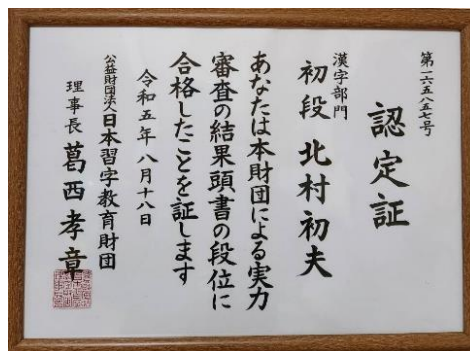 第一六五八五七号
認定証
漢字部門
初段 北村初夫
あなたは本財団による実力
審査の結果頭書の段位に
合格したことを証します
令和五年八月十八日
公益財団法人日本習字教育財団
理事長 葛西孝章